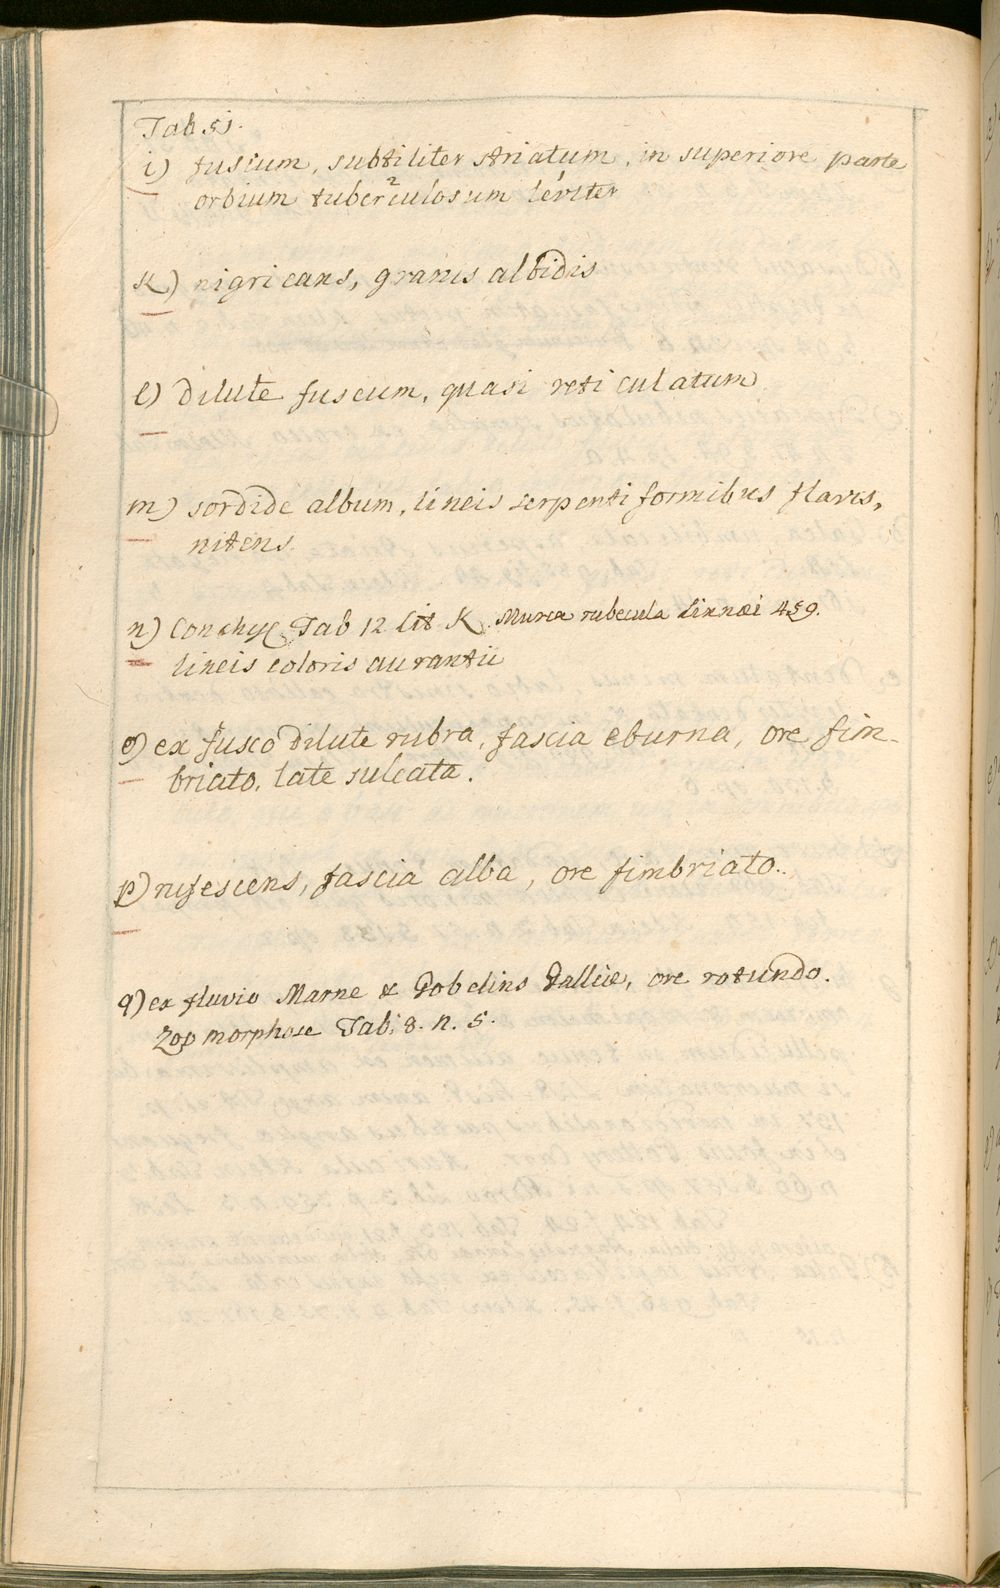 Tab 51.
i) fuscum, subtiliter striatum, in superiore parte
orbium tuberculosum leviter
K) nigricans, granis albidis
l) dilute fuscum, quasi reticulatum
m) sordide album, lineis serpentiformibus flavis,
nitens.
n) Conchyl. Tab 12 lit K. Murex rubecula Linnæi 459.
lineis coloris aurantii
o) ex fusco dilute rubra, fascia eburna, ore fim-
briato, late sulcata.
p) rufescens, fascia alba, ore fimbriato.
q) ex fluvio Marne & Gobelins Galliæ, ore rotundo.
Zoo morphose Tab. 8. n. 5.